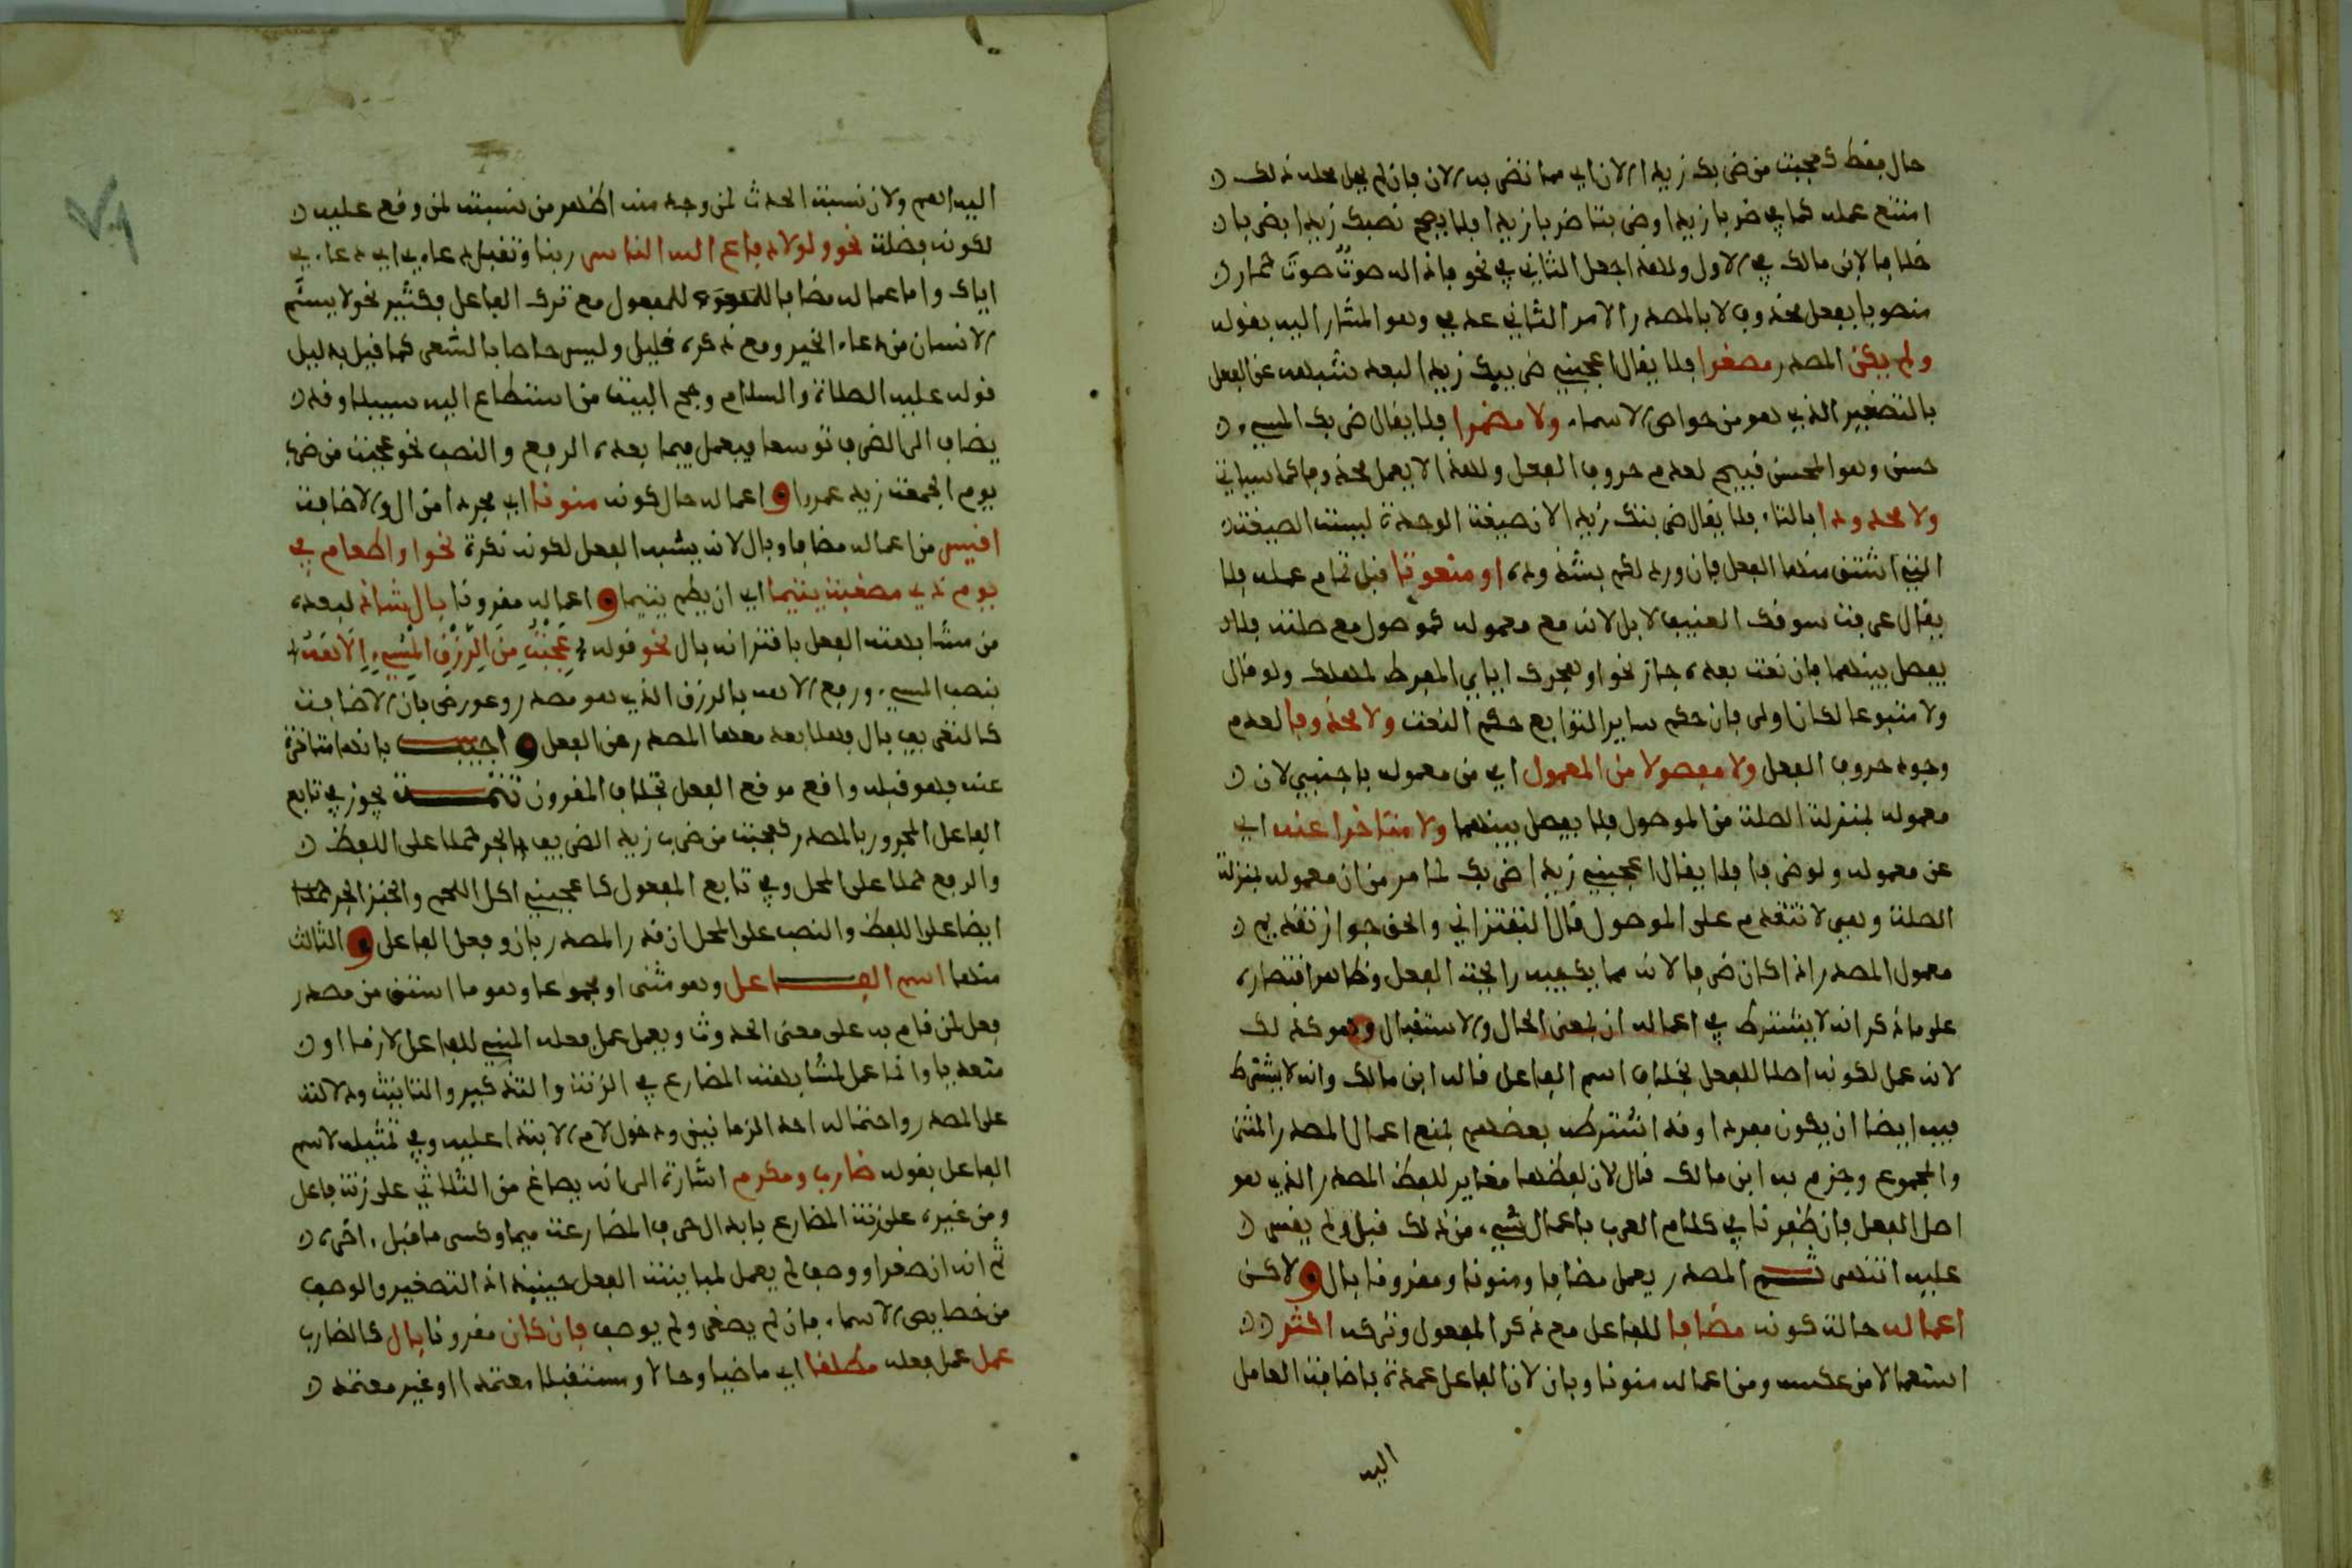 حال فقط كعجبت من ضربك زيدا الان اي مما تضربه الان فان لم يحل محله ذلك
امتنع عمله كما في ضربا زيدا وضربتا ضربا زيدا فلا يصح نصبك زيدا بضربا
خلافا لابن مالك في الاول ولهذا جعل الثاني في نحو فاذا له صوتٌ صوتَ حمار
منصوبا بفعل محذوف لا بالمصدر الامر الثاني عدمي وهو المشار اليه بقوله
ولم يكن المصدر مصغرا فلا يقال اعجبني ضريبك زيدا لبعد شبهه عن الفعل
بالتصغير الذي هو من خواص الاسماء ولا مضمرا فلا يقال ضربك المسيء
حسن وهو المحسن قبيح لعدم حروف الفعل ولهذا لا يعمل محذوفا كما سياتي
ولا محدودا بالتاء فلا يقال ضربتك زيدا لان صيغة الوحدة ليست الصيغة
التي اشتق منها الفعل فان ورد حكم بشذوذه او منعوتا قبل تمام عمله فلا
يقال عرفت سوقك العنيف الابل لانه مع معموله كموصول مع صلته فلا
يفصل بينهما فان نعت بعده جاز نحو او هجرك اياي المفرط لمهلك ولو قال
ولا متبوعا لكان اولى فان حكم ساير التوابع حكم النعت ولا محذوفا لعدم
وجود حروف الفعل ولا مفصولا من المعمول اي من معموله باجنبي لان
معموله بمنزلة الصلة من الموصول فلا يفصل بينهما ولا متاخرا عنه اي
عن معموله ولو ظرفا فلا يقال اعجبني زيدا ضربك لما مر من ان معموله بمنزلة
الصلة وهي لا تتقدم على الموصول قال التفتزاني والحق جواز تقديم
معمول المصدر اذا كان ظرفا لانه مما يكفيه رائحة الفعل وظاهر اقتصاره
على ما ذكر انه لا يشترط في اعماله ان بمعنى الحال والاستقبال وهو كذلك
لانه عمل لكونه اصلا للفعل بخلاف اسم الفاعل قاله ابن مالك وانه لا يشترط
فيه ايضا ان يكون مفردا وقد اشترطه بعضهم فمنع اعمال المصدر المثنى
والمجموع وجزم به ابن مالك قال لان لفظهما مغاير للفظ المصدر الذي هو
اصل الفعل فان ظفرنا في كلام العرب باعمال شيء من ذلك قبل ولم يقس
عليه انتهى ثم المصدر يعمل مضافا ومنونا ومقرونا بال و لاكن
اعماله حالة كونه مضافا للفاعل مع ذكر المفعول وتركه اكثر
استعمالا من عكسه ومن اعماله منونا وبان لان الفاعل عمدة باضافة العامل
اليه
اليه اهم ولان نسبة الحدث لمن وجد منه اظهر من نسبته لمن وقع عليه
لكونه فضلة نحو ولولا دفاع الله الناس ربنا وتقبل دعاءي اي دعاءي
اياك واما اعماله مضافا للمفعول مع ترك الفاعل فكثير نحو لا يسئم
الانسان من دعاء الخير ومع ذكره فقليل وليس خاصا بالشعر كما قيل بدليل
قوله عليه الصلاة والسلام وحج البيت من استطاع اليه سبيلا وقد
يضاف الى الظرف توسعا فيعمل فيما بعده الرفع والنصب نحو عجبت من ضرب
يوم الجمعة زيد عمروا و اعماله حال كونه منونا اي مجردا من ال والاضافة
اقيس من اعماله مضافا وبال لانه يشبه الفعل لكونه نكرة نحو او اطعام في
يوم ذي مسغبة يتيما اي ان يطعم يتيما و اعماله مقرونا بال شاذ لبعده
من مشابهة الفعل باقترانه بال نحو قوله عجبت من الرزق المسيء الاهه
بنصب المسيء ورفع الاهه بالرزق الذي هو مصدر وعورض بان الاضافة
كالتعريف بال فهلا بعد معها المصدر عن الفعل و اجيب بانها متاخرة
عنه فهو قبله واقع موقع الفعل بخلاف المقرون تتمة يجوز في تابع
الفاعل المجرور بالمصدر كعجبت من ضرب زيد الظريف بالجر حملا على اللفظ
والرفع حملا على المحل وفي تابع المفعول كاعجبني اكل اللحم والخبز الجر حملا
ايضا على اللفظ والنصب على المحل ان قدر المصدر بان وفعل الفاعل و الثالث
منها اسم الفاعل وهو مثنى او مجموعا وهو ما اشتق من مصدر
فعل لمن قام به على معنى الحدوث ويعمل عمل فعله المبني للفاعل لازما او
متعديا وانما عمل لمشابهة المضارع في الزنة والتذكير والتانيث ودلالته
على المصدر واحتماله احد الزمانين ودخول لام الابتدا عليه وفي تمثيله لاسم
الفاعل بقوله ضارب ومكرم اشارة الى انه يصاغ من الثلاثي على زنة فاعل
ومن غيره على زنة المضارع بابدال حرف المضارعة ميما وكسر ما قبل اخره
ثم انه ان صغر او وصف لم يعمل لمباينته الفعل حينيذ اذ التصغير والوصف
من خصايص الاسماء فان لم يصغر ولم يوصف فان كان مقرونا بال كالضارب
عمل عمل فعله مطلقا اي ماضيا وحالا ومستقبلا معتمدا او غير معتمد